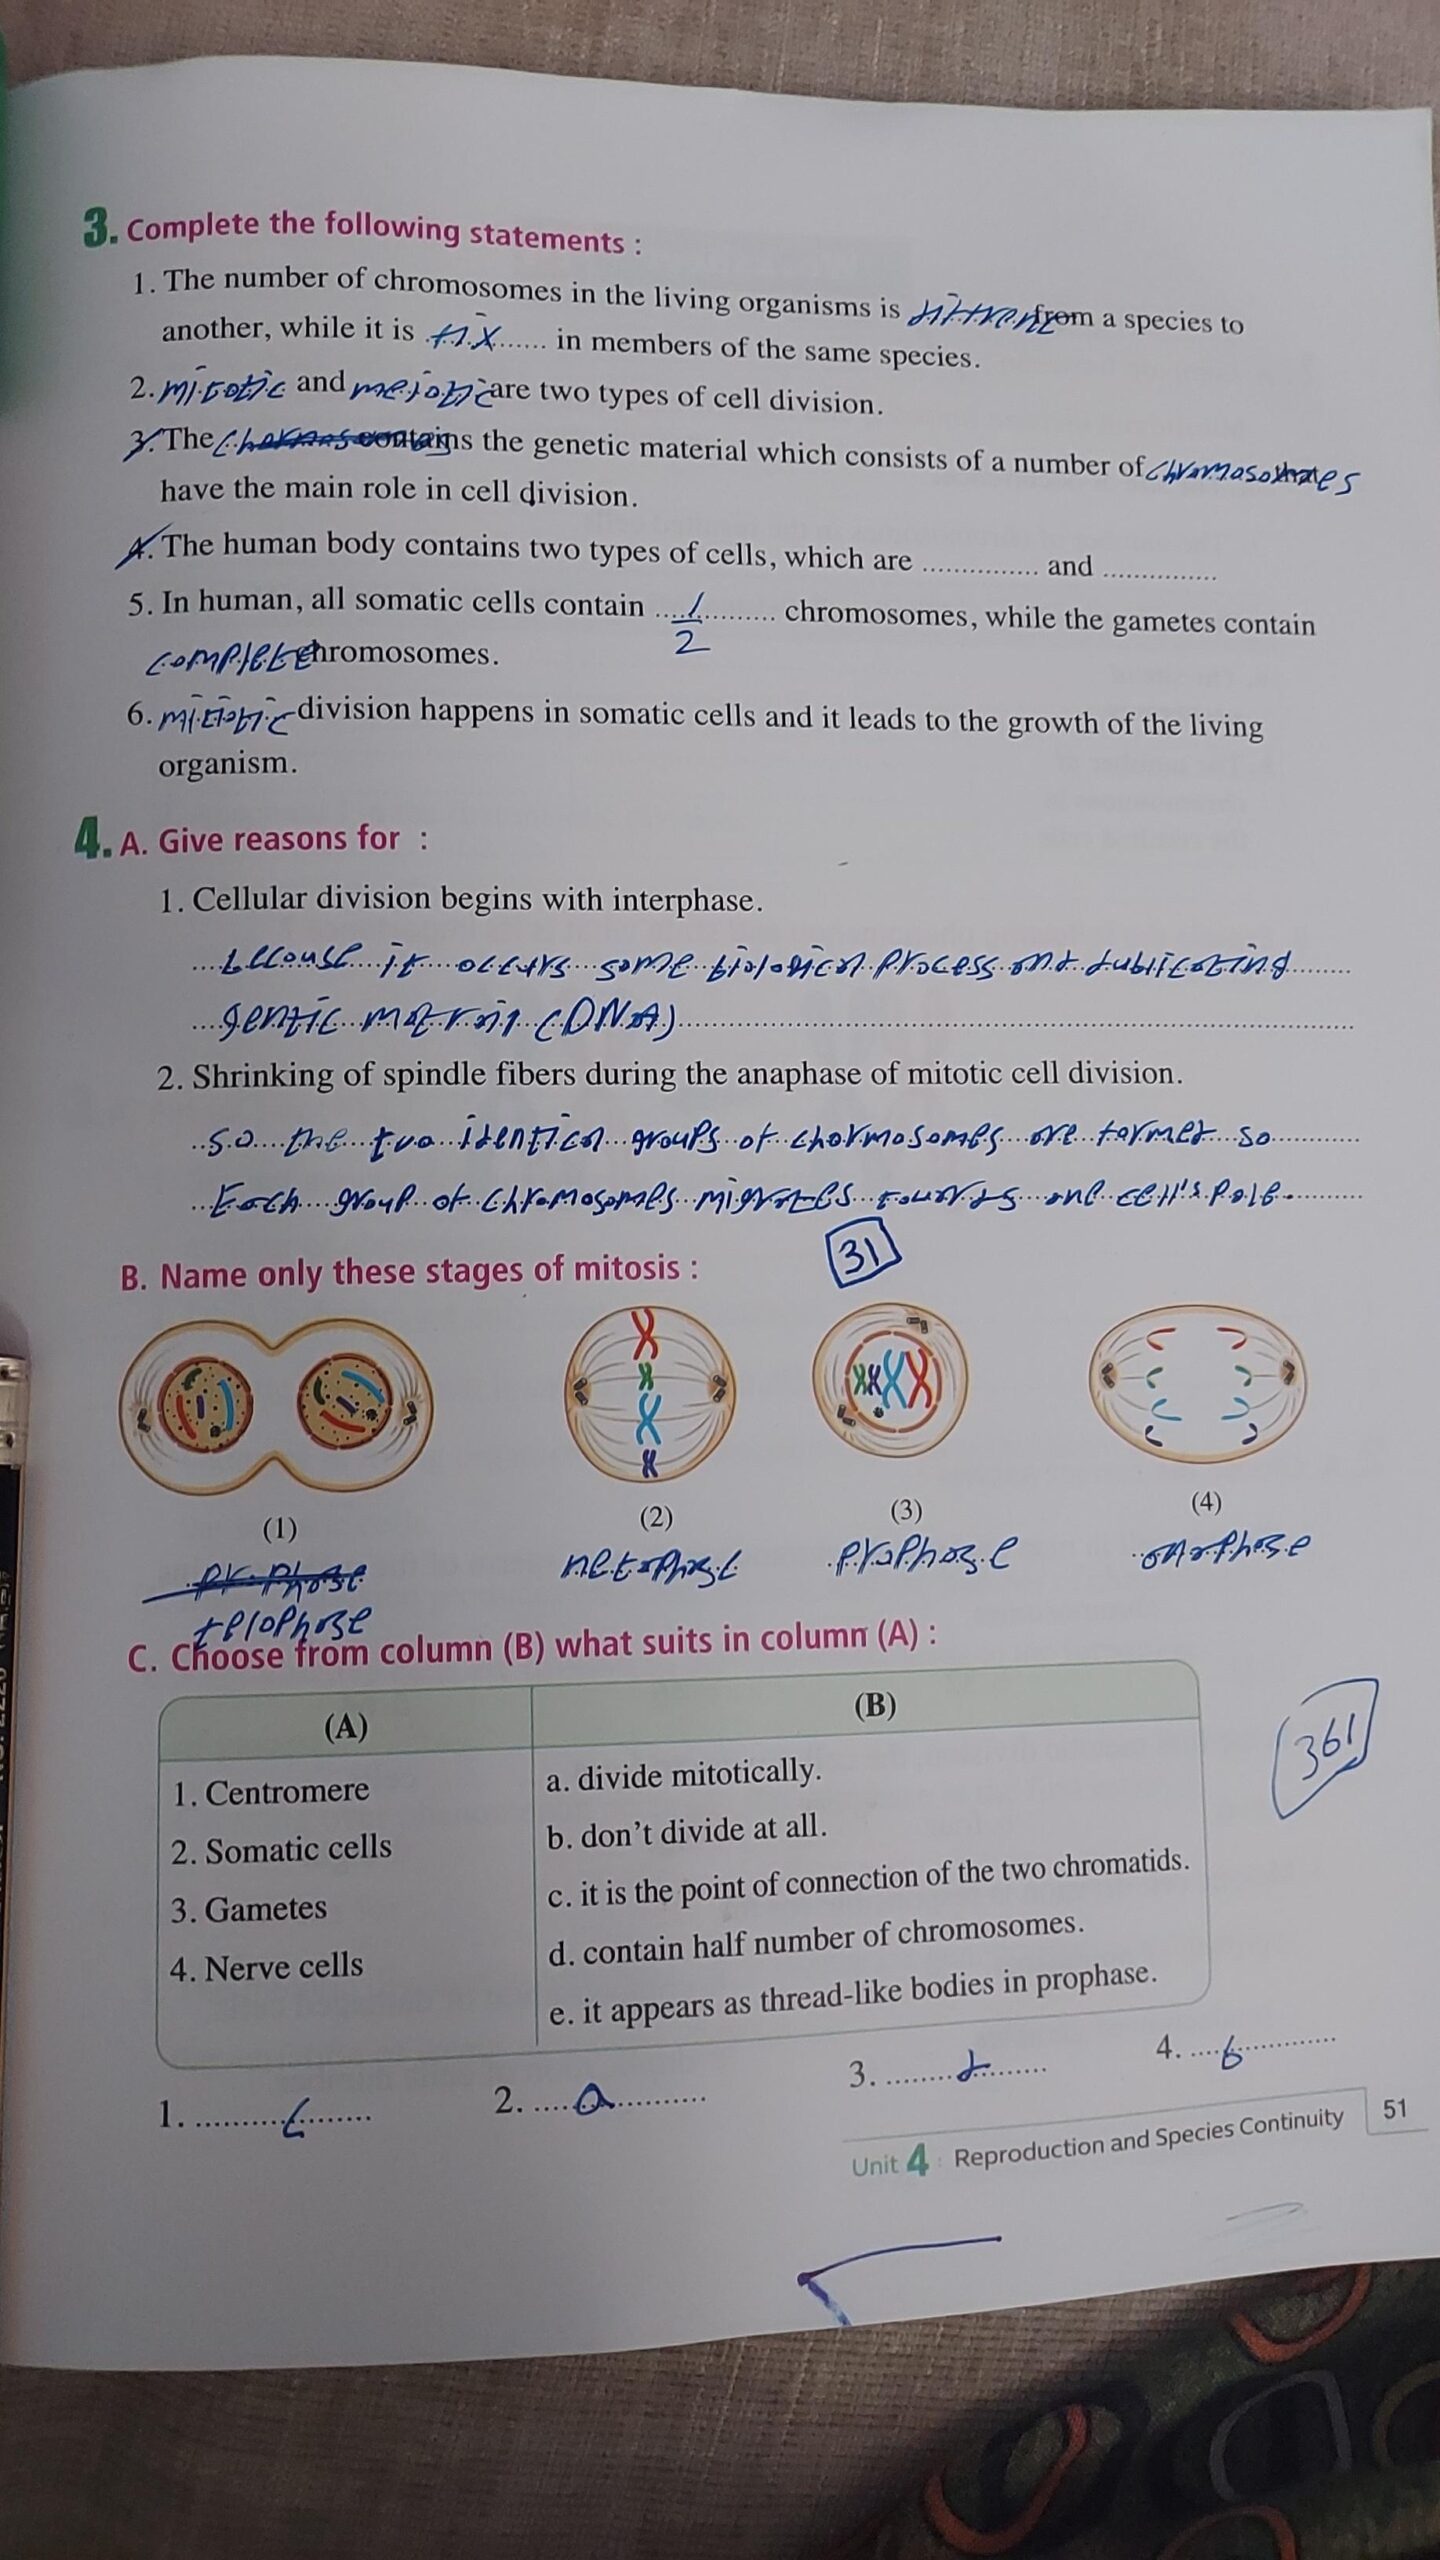 3. Complete the following statements :
1. The number of chromosomes in the living organisms is from a species to
another, while it is fix in members of the same species.
2. mitotic and meiotic are two types of cell division.
3. The contains the genetic material which consists of a number of chromosomes that
have the main role in cell division.
4. The human body contains two types of cells, which are ............... and ...............
5. In human, all somatic cells contain 1/2 chromosomes, while the gametes contain
complete chromosomes.
6. division happens in somatic cells and it leads to the growth of the living
organism.
4. A. Give reasons for :
1. Cellular division begins with interphase.
becouse it occurs some biological process and dublicating
(DNA)
2. Shrinking of spindle fibers during the anaphase of mitotic cell division.
so the two identical groups of chormosomes are formed so
Each group of chromosomes migrates towards one cell's pole.
B. Name only these stages of mitosis :
31
(1)
(2)
(3)
(4)
prophase
telophase
prophase
C. Choose from column (B) what suits in column (A) :
(A)
(B)
1. Centromere
a. divide mitotically.
2. Somatic cells
b. don't divide at all.
3. Gametes
c. it is the point of connection of the two chromatids.
4. Nerve cells
d. contain half number of chromosomes.
e. it appears as thread-like bodies in prophase.
361
1. c
2. a
3. d
4. b
Unit 4 : Reproduction and Species Continuity
51